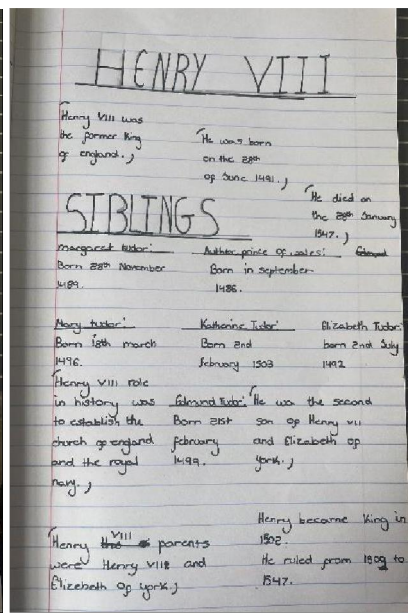 HENRY VIII
Henry VIII was
the former King
of england.
He was born
on the 28th
of June 1491.
He died on
the 28th January
1547.
SIBLINGS
margaret tudor:
Born 28th November
1489.
Born in september
1486.
Mary tudor:
Born 18th march
1496.
Katharine Tudor:
Born 2nd
february 1503
Elizabeth Tudor:
born 2nd July
1492
Henry VIII role
in history was
to establish the
church of england
and the royal
navy.
Edmund Tudor:
Born 21st
february
1499.
He was the second
son of Henry VII
and Elizabeth of
york.
Henry VIII parents
were Henry and
Elizebeth of york.
Henry became King in
1502.
He ruled from 1509 to
1547.